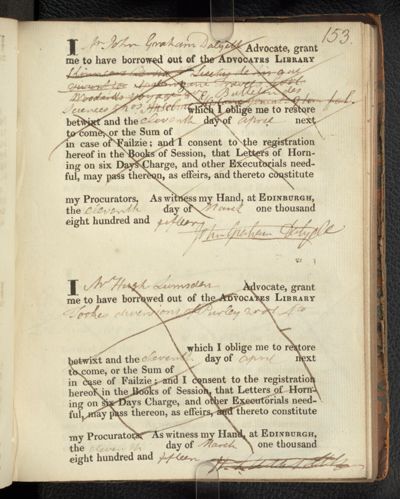 153.
I Mr John Graham Dalyell Advocate, grant
me to have borrowed out of the ADVOCATES LIBRARY
Bulletin des
Sciences
which I oblige me to restore
betwixt and the eleventh day of April next
to come, or the Sum of
in case of Failzie; and I consent to the registration
hereof in the Books of Session, that Letters of Horn-
ing on six Days Charge, and other Executorials need-
ful, may pass thereon, as effeirs, and thereto constitute
my Procurators. As witness my Hand, at EDINBURGH,
the eleventh day of March one thousand
eight hundred and fifteen
John Graham Dalyell
I Mr Hugh Lumsden Advocate, grant
me to have borrowed out of the ADVOCATES LIBRARY
Tookes diversions of Purley 2 vols 4to
which I oblige me to restore
betwixt and the eleventh day of April next
to come, or the Sum of
in case of Failzie; and I consent to the registration
hereof in the Books of Session, that Letters of Horn-
ing on six Days Charge, and other Executorials need-
ful, may pass thereon, as effeirs, and thereto constitute
my Procurators. As witness my Hand, at EDINBURGH,
the eleventh day of March one thousand
eight hundred and fifteen